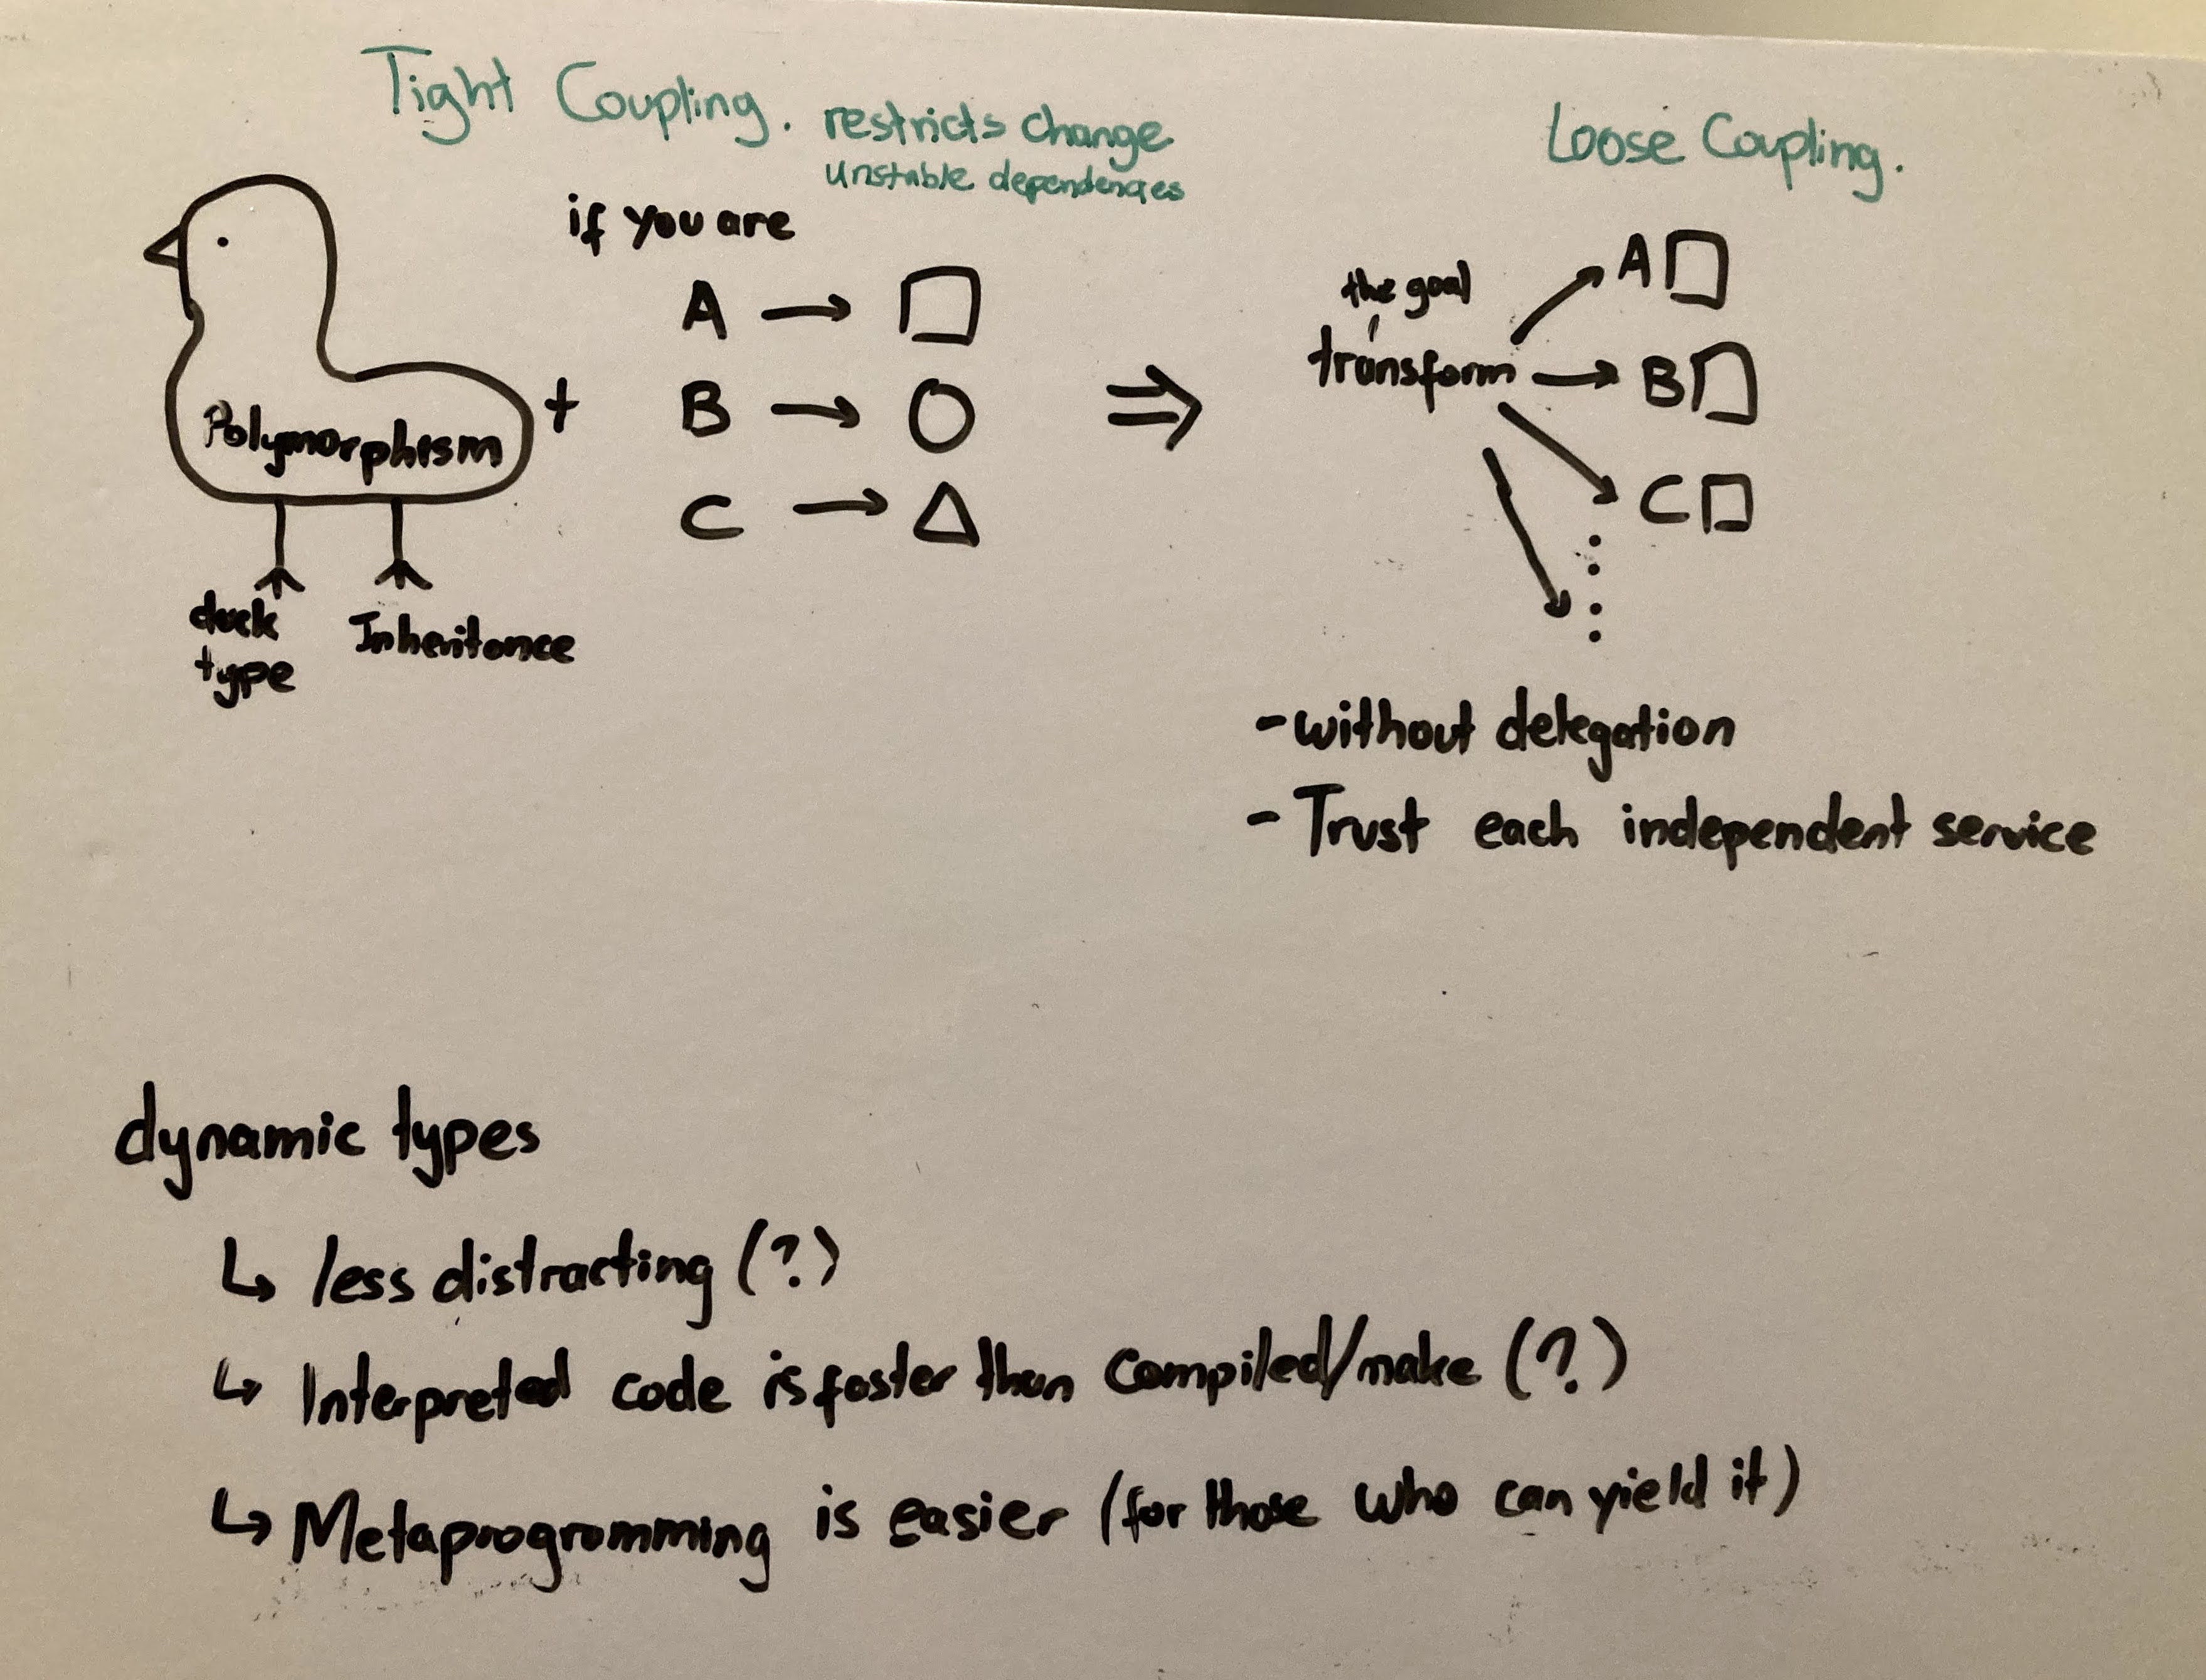 Tight Coupling. restricts change
Unstable dependencies
Loose Coupling.
if you are
A → □
B → ○
C → △
Polymorphism
+
duck
type
Inheritance
⇒
the goal
transform
A □
B □
C □
- without delegation
- Trust each independent service
dynamic types
↳ less distracting (?)
↳ Interpreted code is faster than compiled/make (?)
↳ Metaprogramming is easier (for those who can yield it)